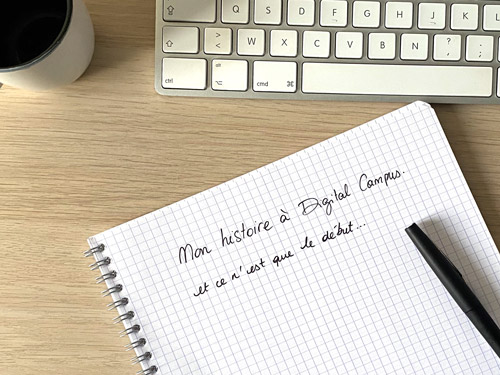 Q S D F G H J K L
> < W X C V B N ? , . ; :
ctrl alt cmd ⌘
Mon histoire à Digital Campus.
et ce n'est que le début...